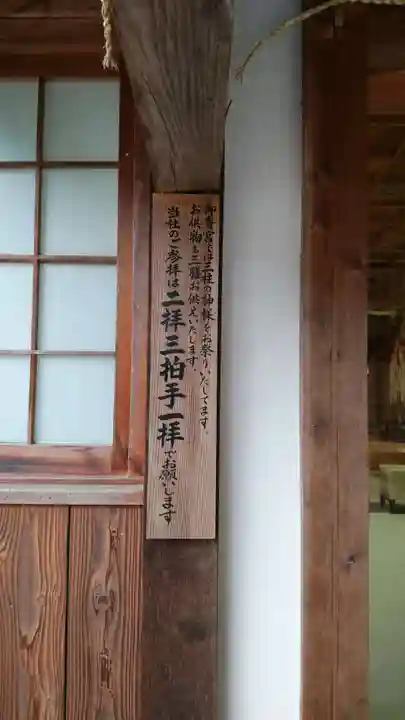 御香宮では三柱の神様をお祭りいたしてます。
お供物も三膳お供えいたします。
当社のご参拝は二拝三拍手一拝でお願いします